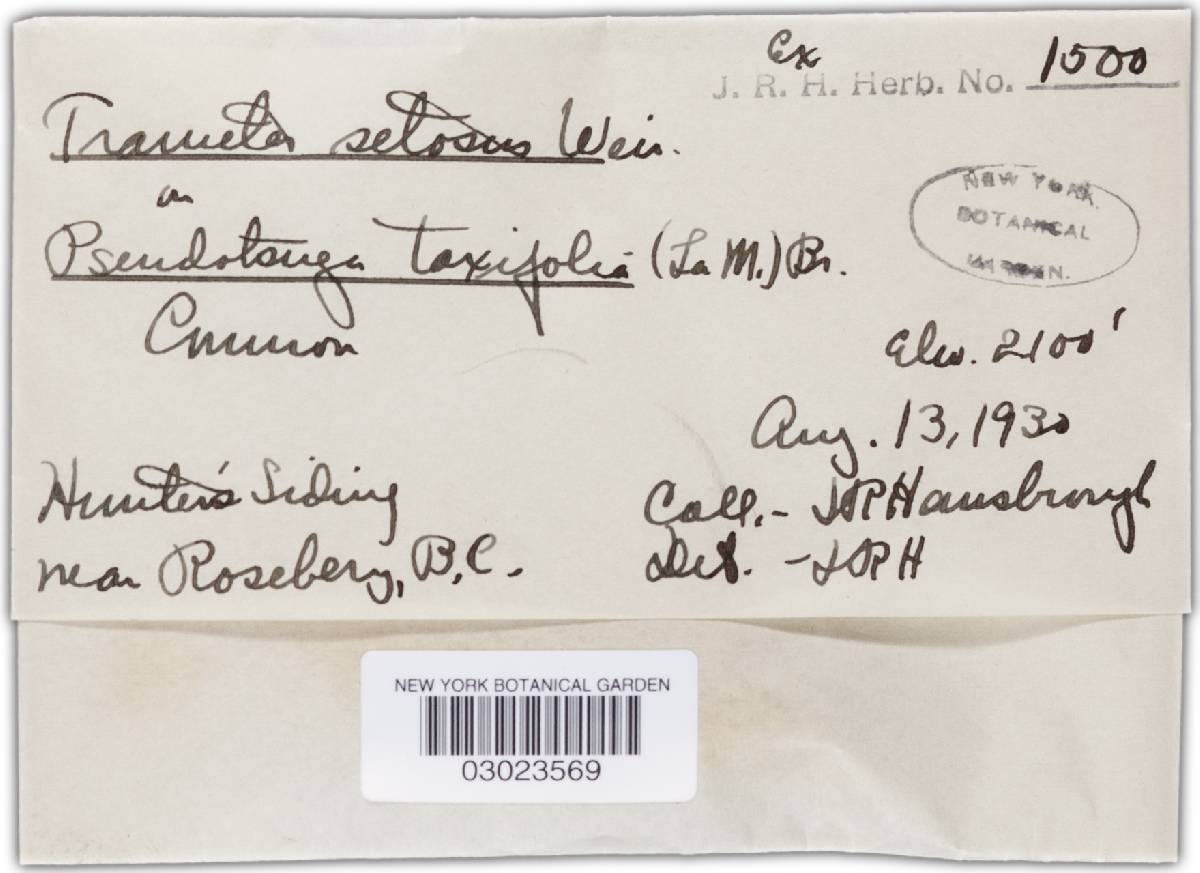 Ex
J. R. H. Herb. No. 1500
Trametes setosus Weir.
on
Pseudotsuga taxifolia (La M.) Br.
Common
NEW YORK
BOTANICAL
GARDEN.
Elev. 2100'
Aug. 13, 1930
Hunter's Siding
near Rosebery, B.C.
Coll. - Hansbrough
Det. -
NEW YORK BOTANICAL GARDEN
03023569